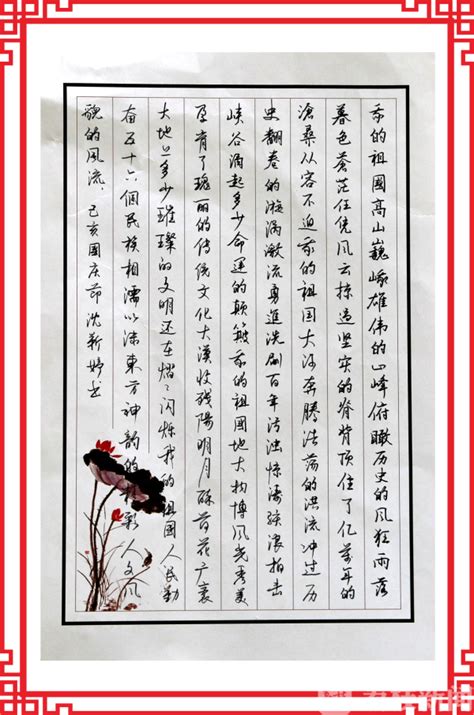 我的祖國高山巍峨雄伟的山峰俯瞰历史的风狂雨落
暮色蒼茫任凭风云掠过坚实的脊背顶住了亿萬年的
滄桑从容不迫我的祖国大河奔腾浩荡的洪流冲过历
史翻卷的漩涡激流勇進洗刷百年污浊惊涛骇浪拍击
峡谷涌起多少命运的颠簸我的祖國地大物博风光秀美
孕育了瑰丽的传统文化大漠收残陽明月醉荷花广袤
大地上多少璀璨的文明还在熠々闪烁我的祖國人民勤
奋五十六個民族相濡以沫東方神韵的精彩人文风
貌的風流。己亥國庆节沈新婷书
新闻